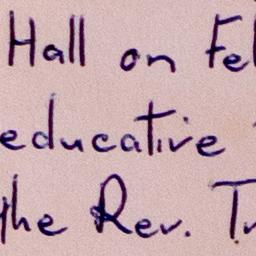 Hall on Fe
educative
the Rev. Tr